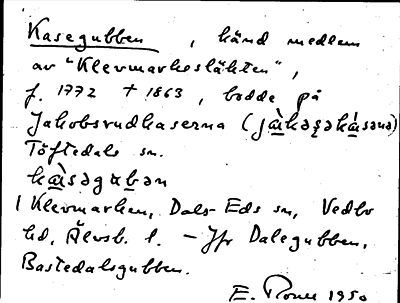 Kasegubben, känd medlem
av "Klevmarkesläkten",
f. 1772 † 1863, bodde på
Jakobsrudkaserna
Töftedals sn.
kàsəgubən
Klevmarken, Dals-Eds sn, Vedbo
hd, Älvsb. l. - Jfr Dalegubben,
Bastedalsgubben.
E. 1950